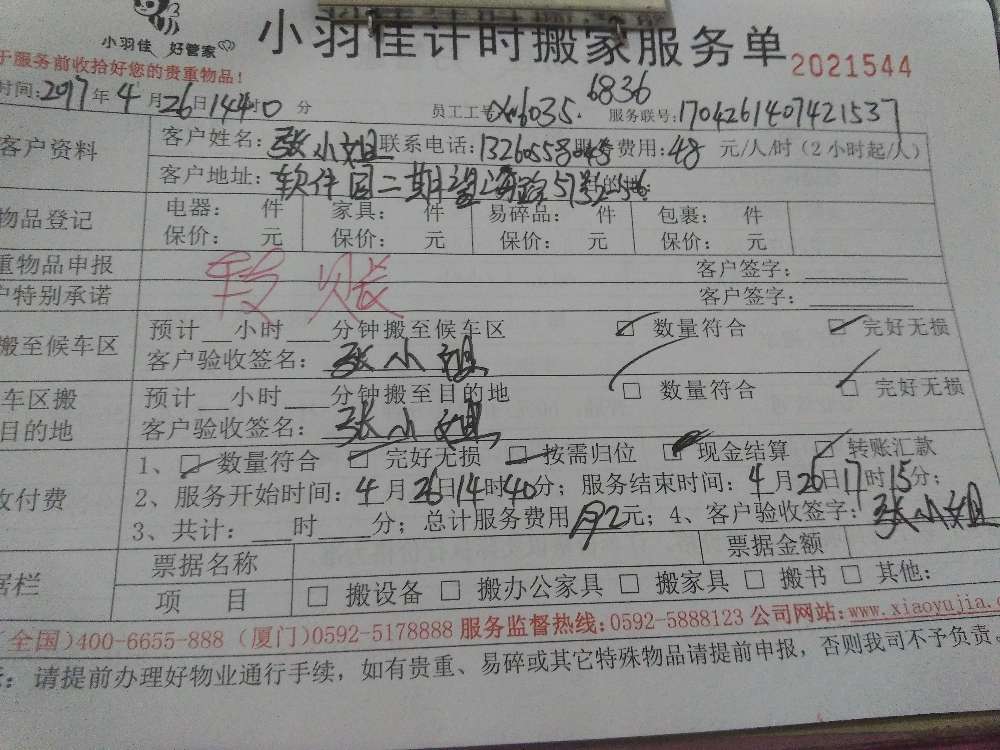 小羽佳 好管家
小羽佳计时搬家服务单 2021544
于服务前收拾好您的贵重物品！
时间：2017年4月26日14时40分 员工工号 6035. 6836 服务联号：1704261407421537
客户资料 客户姓名：张小姐 联系电话： 服务费用：48元/人/时（2小时起/人）
客户地址：软件园二期望海路
物品登记 电器： 件 家具： 件 易碎品： 件 包裹： 件
保价： 元 保价： 元 保价： 元 保价： 元
重物品申报 客户签字：
户特别承诺 客户签字：
转账
搬至候车区 预计__小时__分钟搬至候车区 数量符合 完好无损
客户验收签名：张小姐
车区搬 预计__小时__分钟搬至目的地 数量符合 完好无损
目的地 客户验收签名：张小姐
收付费 1、□数量符合 □完好无损 □按需归位 □现金结算 □转账汇款
2、服务开始时间：4月26日14时40分；服务结束时间：4月26日17时15分；
3、共计：__时__分；总计服务费用 元；4、客户验收签字：张小姐
据栏 票据名称 票据金额
项 目 □ 搬设备 □ 搬办公家具 □ 搬家具 □ 搬书 □ 其他：
（全国）400-6655-888（厦门）0592-5178888 服务监督热线：0592-5888123 公司网站：www.xiaoyujia.c
：请提前办理好物业通行手续，如有贵重、易碎或其它特殊物品请提前申报，否则我司不予负责。